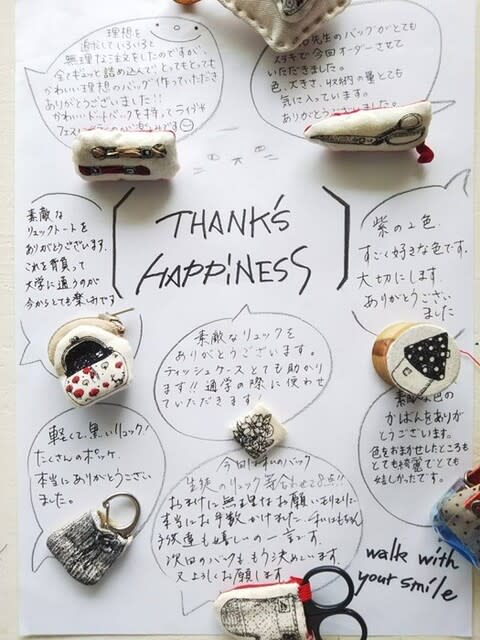 理想を
無理な注文をしたのですが、
全てギュッと詰め込んで とってもとっても
かわいい理想のバッグ作っていただき
ありがとうございました!!
かわいいドットバックを持ってライブや
先生のバッグがとても
ステキで今回オーダーさせて
いただきました。
色、大きさ、収納の量とても
気に入っています。
ありがとうございました。
THANK'S
HAPPiNESS
素敵な
リュックトートを
ありがとうございます。
これを背負って
大学に通うのが
今からとても楽しみです
紫の2色、
すごく好きな色です。
大切にします。
ありがとうござい
ました
素敵なリュックを
ありがとうございます。
ティッシュケースとても助かり
ます!! 通学の際に使わせ
ていただきます!
軽くて、黒いリュック!
たくさんのポッケ、
本当にありがとうござい
ました。
色の
かばんをありが
とうございます。
色をおまかせしたところも
とても綺麗でとても
嬉しかったです。
今回は私のバック
生徒のリュック等合わせて8点!!
本当にお手数かけました。私はもちろん
子供達も嬉しいの一言です。
次回のバックも もう決めています。
又よろしくお願します。
walk with
your smile